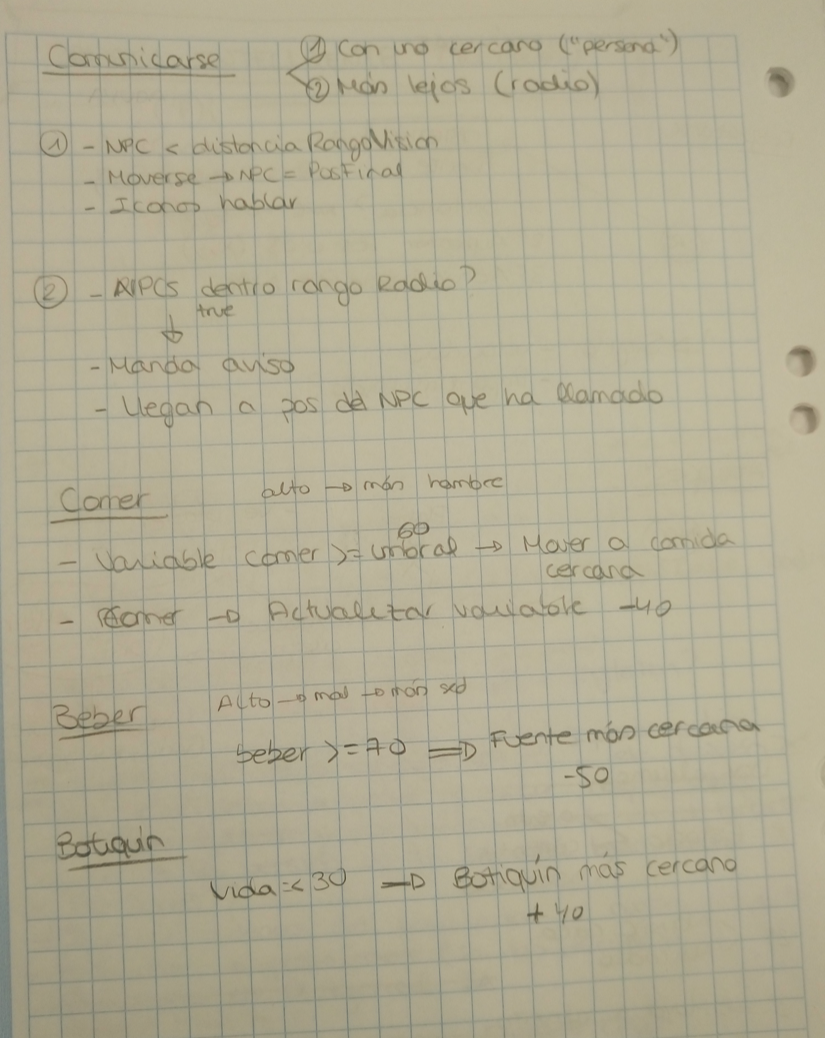 Comunicarse
① Con uno cercano ("persona")
② Más lejos (radio)
① - NPC < distancia RangoVision
- Moverse → NPC = PosFinal
- Iconos hablar
② - NPCS dentro rango Radio?
true
↓
- Manda aviso
- Llegan a pos del NPC que ha llamado
Comer alto → más hambre
60
- Variable comer >= umbral → Mover a comida
cercana
- Comer → Actualizar variable -40
Beber Alto → mal → más sed
beber >= 70 ⇒ Fuente más cercana
-50
Botiquín
Vida =< 30 ⇒ Botiquín más cercano
+ 40